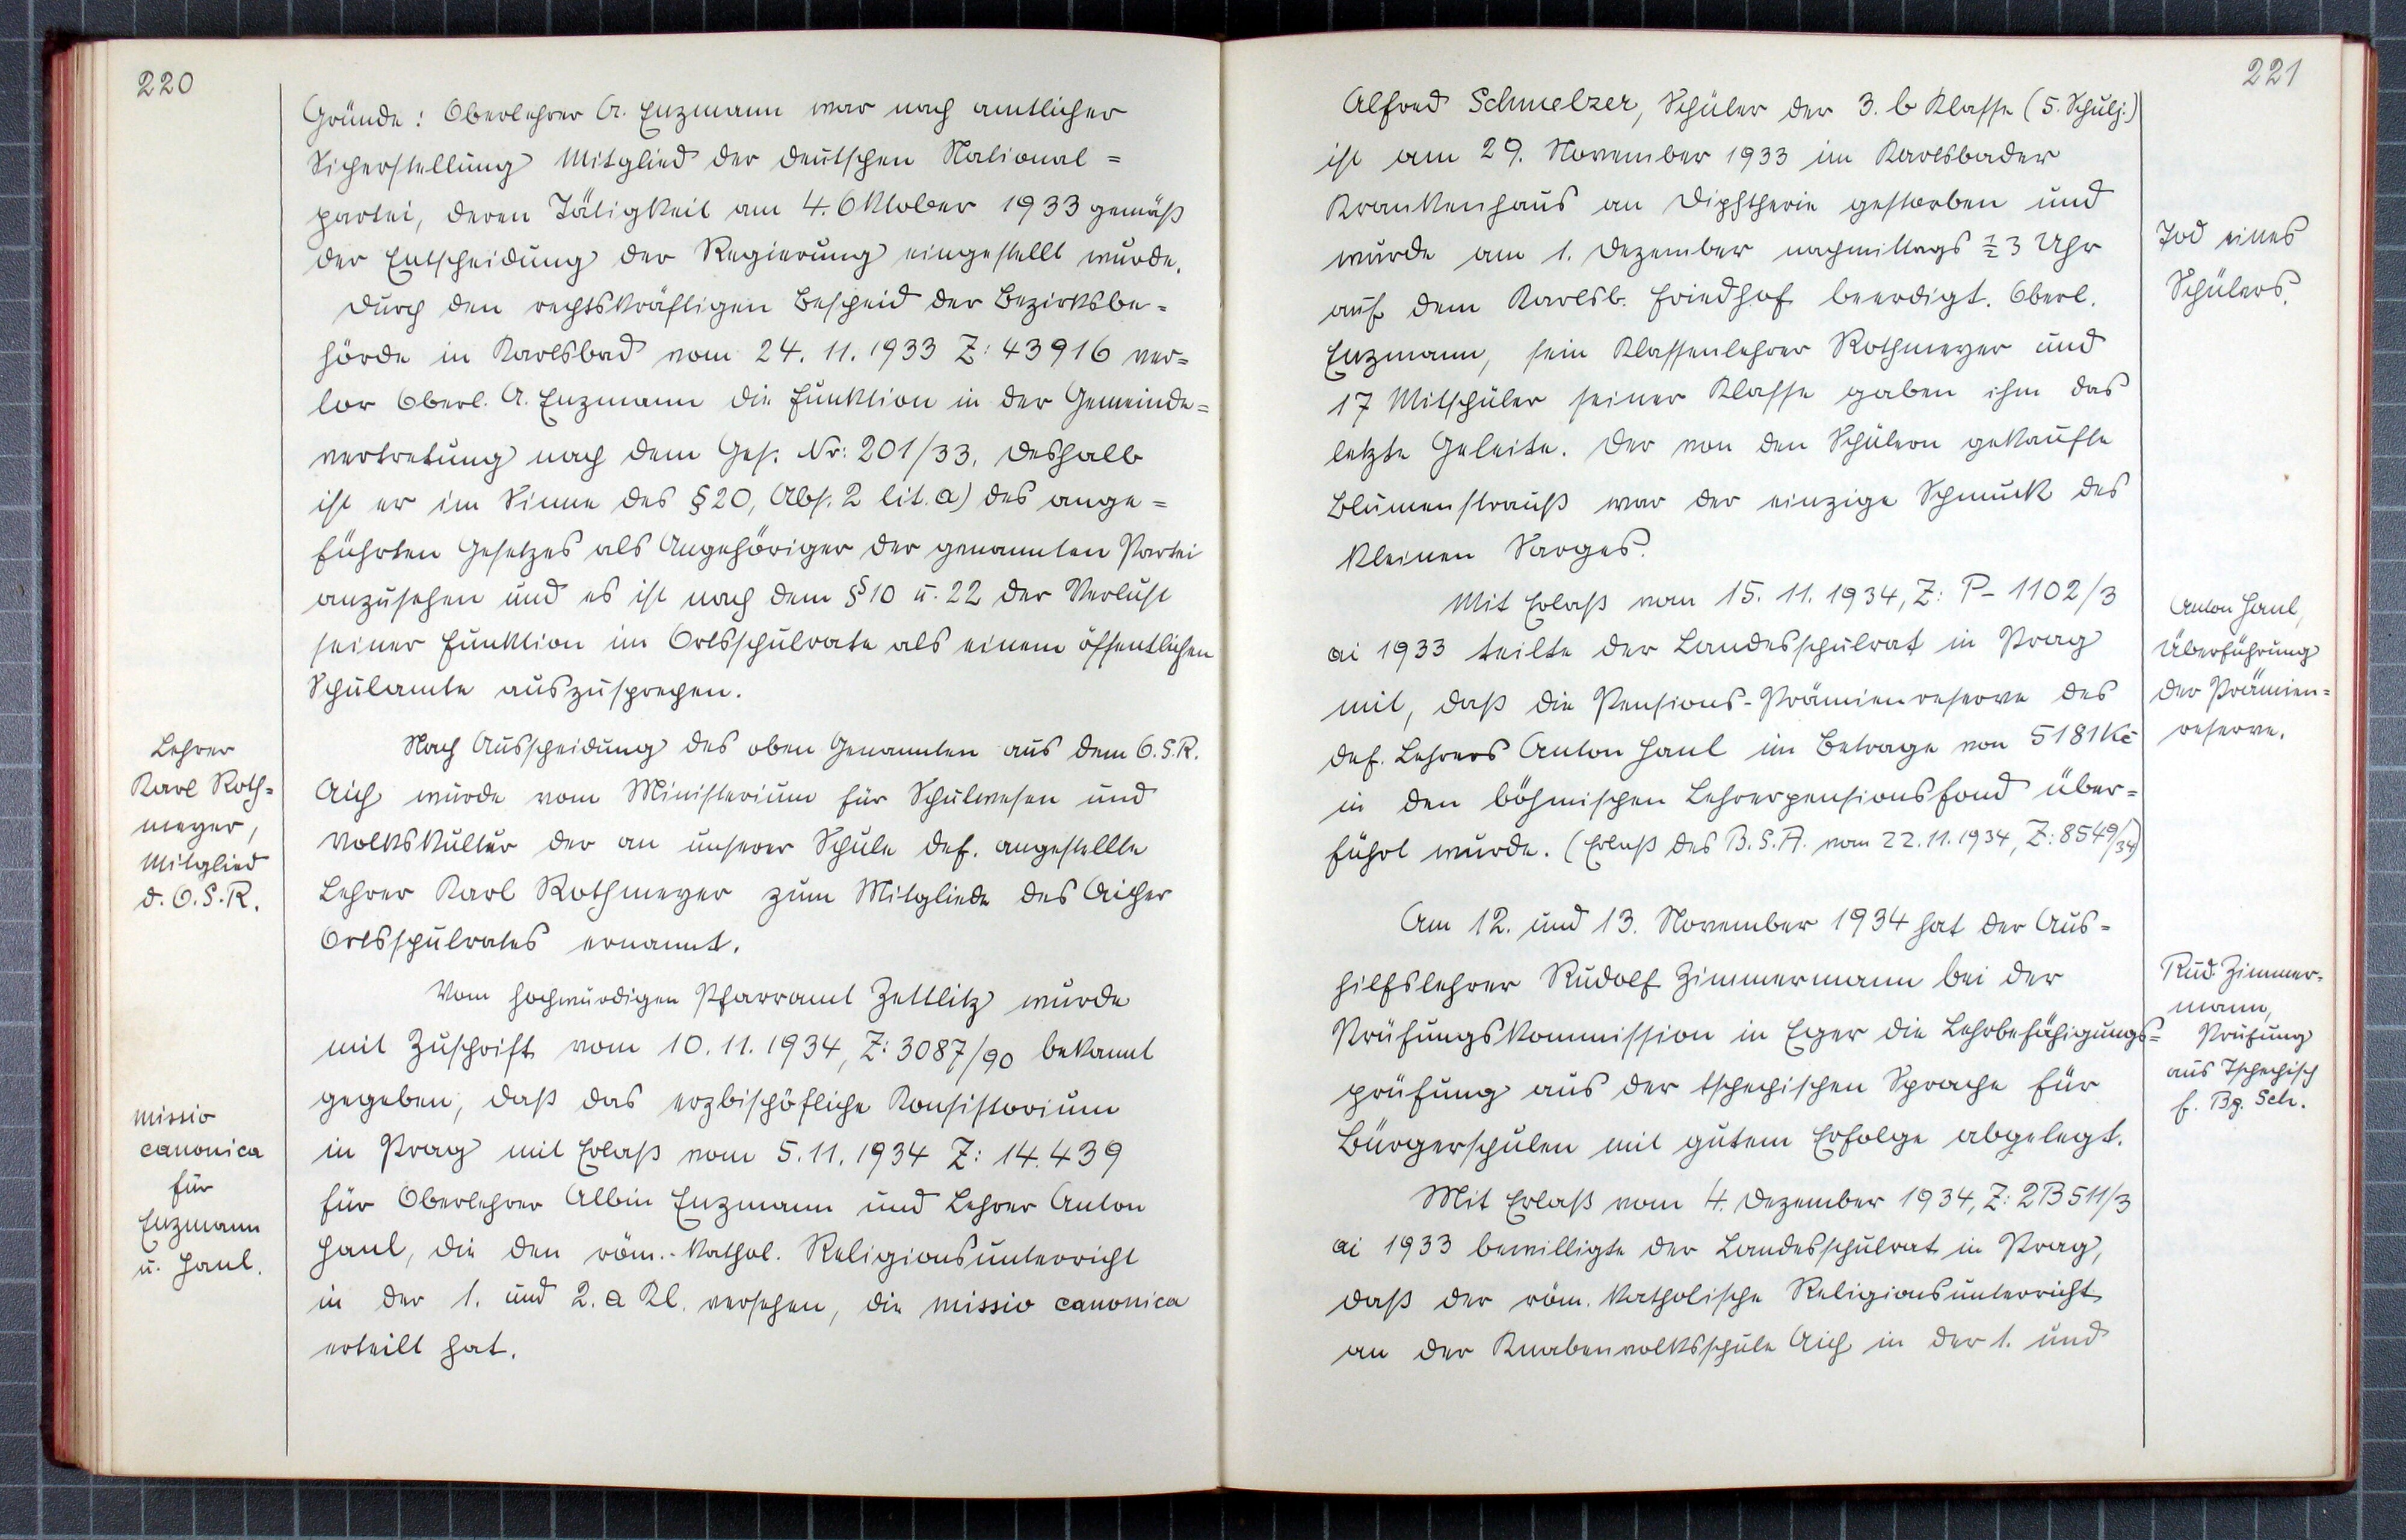 220
Gründe: Oberlehrer A. Enzmann war nach amtlicher
Sicherstellung Mitglied der deutschen National=
partei, deren Tätigkeit am 4. Oktober 1933 gemäß
der Entscheidung der Regierung eingestellt wurde.
Durch den rechtskräftigen Bescheid der Bezirksbe=
hörde in Karlsbad vom 24. 11. 1933 Z: 43916 ver=
lor Oberl. A. Enzmann die Funktion in der Gemeinde=
vertretung nach dem Ges. Nr: 201/33. Deshalb
ist er im Sinne des § 20, Abs. 2 lit. a) des ange=
führten Gesetzes als Angehöriger der genannten Partei
anzusehen und es ist nach dem § 10 u. 22 der Verlust
seiner Funktion im Ortsschulrate als einem öffentlichen
Schulamte auszusprechen.
Lehrer
Karl Roth=
meyer,
Mitglied
d. O.S.R.
Nach Ausscheidung des oben Genannten aus dem O.S.R.
Aich wurde vom Ministerium für Schulwesen und
Volkskultur der an unserer Schule def. angestellte
Lehrer Karl Rothmeyer zum Mitgliede des Aicher
Ortsschulrates ernannt.
missio
canonica
für
Enzmann
u. Haul.
Vom hochwürdigen Pfarramt Zettlitz wurde
mit Zuschrift vom 10. 11. 1934, Z: 3087/90 bekannt
gegeben, daß das erzbischöfliche Konsistorium
in Prag mit Erlaß vom 5. 11. 1934 Z: 14.439
für Oberlehrer Albin Enzmann und Lehrer Anton
Haul, die den röm.-kathol. Religionsunterricht
in der 1. und 2. a Kl. versehen, die missio canonica
erteilt hat.
221
Alfred Schmelzer, Schüler der 3. b Klasse (5. Schulj.)
ist am 29. November 1933 im Karlsbader
Krankenhaus an Diphtherie gestorben und
wurde am 1. Dezember nachmittags ½ 3 Uhr
auf dem Karlsb. Friedhof beerdigt. Oberl.
Enzmann, sein Klassenlehrer Rothmeyer und
17 Mitschüler seiner Klasse gaben ihm das
letzte Geleite. Der von den Schülern gekaufte
Blumenstrauß war der einzige Schmuck des
kleinen Sarges.
Tod eines
Schülers.
Mit Erlaß vom 15. 11. 1934, Z: P-1102/3
ai 1933 teilte der Landesschulrat in Prag
mit, daß die Pensions-Prämienreserve des
def. Lehrers Anton Haul im Betrage von 5181 Kč
in den böhmischen Lehrerpensionsfond über=
führt wurde. (Erlaß des B.S.A. vom 22. 11. 1934, Z: 8549/34)
Anton Haul,
Überführung
der Prämien=
reserve.
Am 12. und 13. November 1934 hat der Aus=
hilfslehrer Rudolf Zimmermann bei der
Prüfungskommission in Eger die Lehrbefähigungs=
prüfung aus der tschechischen Sprache für
Bürgerschulen mit gutem Erfolge abgelegt.
Rud. Zimmer=
mann,
Prüfung
aus Tschechisch
f. Bg. Sch.
Mit Erlaß vom 4. Dezember 1934, Z: 2B511/3
ai 1933 bewilligte der Landesschulrat in Prag,
daß der röm. katholische Religionsunterricht
an der Knabenvolksschule Aich in der 1. und